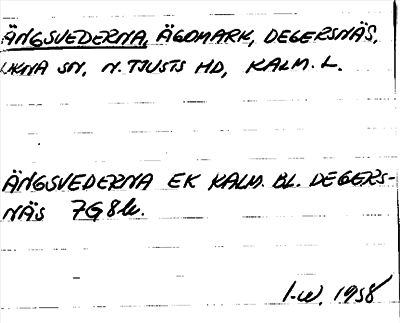 ÄNGSVEDERNA, ÄGOMARK, DEGERSNÄS,
UKNA SN, N. TJUSTS HD, KALM. L.
ÄNGSVEDERNA EK KALM. BL. DEGERS-
NÄS 7G8h.
I-W. 1958